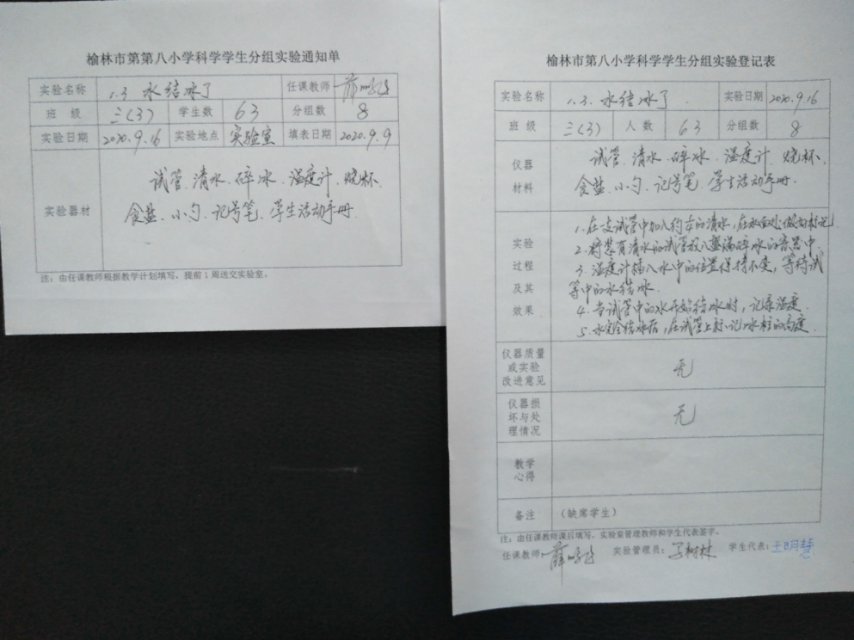 榆林市第第八小学科学学生分组实验通知单
实验名称 1.3 水结冰了 任课教师
班 级 三(3) 学生数 63 分组数 8
实验日期 2020.9.16 实验地点 实验室 填表日期 2020.9.9
实验器材
试管、清水、碎冰、温度计、烧杯、
食盐、小勺、记号笔、学生活动手册.
注:由任课教师根据教学计划填写,提前1周送交实验室。
榆林市第八小学科学学生分组实验登记表
实验名称 1.3.水结冰了. 实验日期 2020.9.16
班 级 三(3) 人 数 63 分组数 8
仪器
材料
试管、清水、碎冰、温度计、烧杯、
食盐、小勺、记号笔、学生活动手册.
实验
过程
及其
效果
1.在支试管中加入约 的清水,在水面处做好标记
2.将装有清水的试管放入盛满碎冰的 中
3.温度计插入水中的位置保持不变,等待试
管中的水结冰.
4.当试管中的水开始结冰时,记录温度.
5.水完全结冰后,在试管上标记冰柱的高度.
仪器质量
或实验
改进意见
无
仪器损
坏与处
理情况
无
教学
心得
备注 (缺席学生)
注:由任课教师课后填写,实验室管理教师和学生代表签字。
任课教师: 实验管理员: 学生代表: